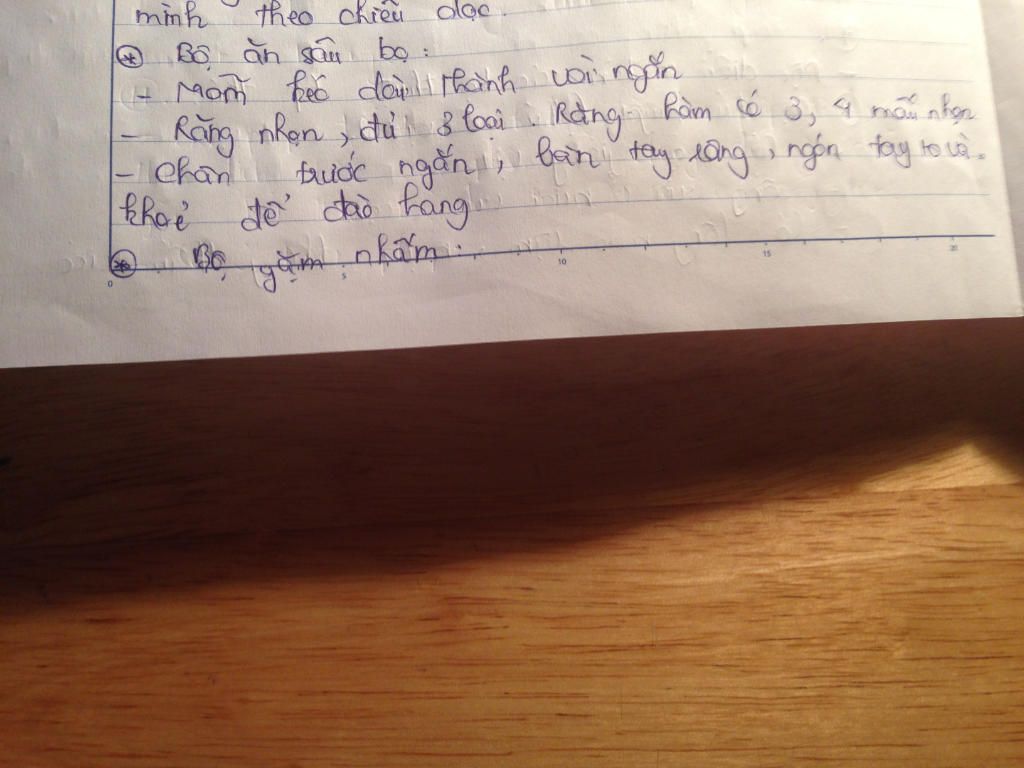 mình theo chiều dọc.
⊛ Bộ ăn sâu bọ:
- Mõm kéo dài thành vòi ngắn
- Răng nhọn, đủ 3 loại. Răng hàm có 3, 4 mấu nhọn
- Chân trước ngắn, bàn tay rộng, ngón tay to và
khoẻ để đào hang
⊛ Bộ gặm nhấm:
0 5 10 15 20